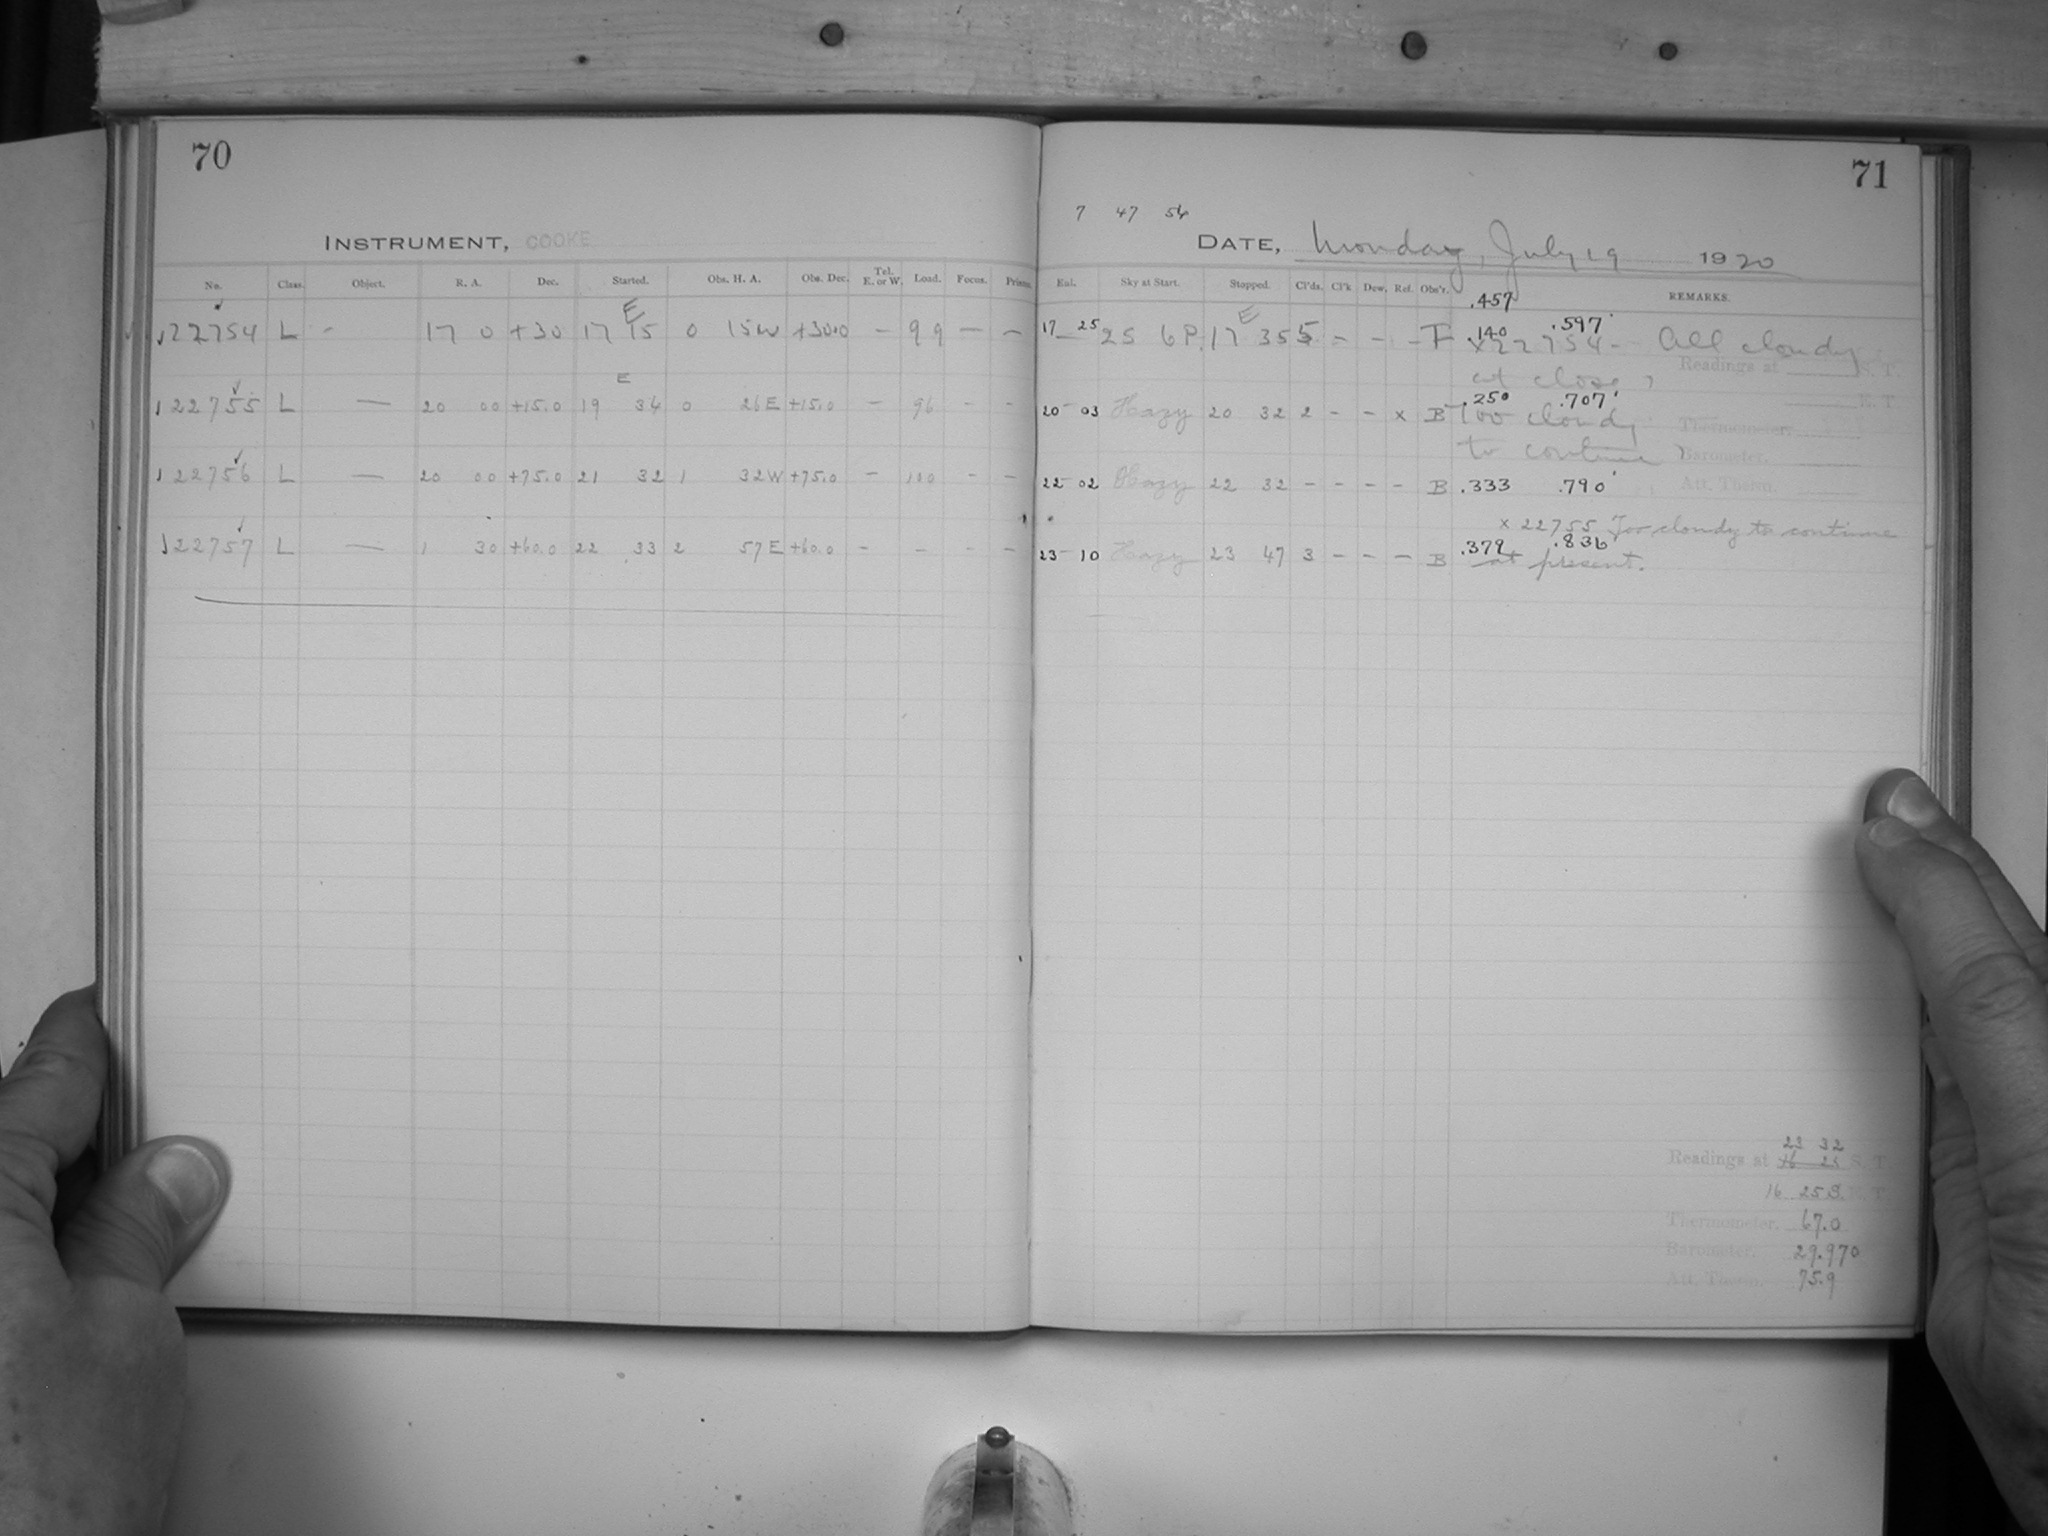 70
INSTRUMENT, COOKE
No. Class. Object. R. A. Dec. Started. Obs. H. A. Obs. Dec. Tel. E. or W. Load. Focus. Prisms.
E
22754 L - 17 0 +30 17 15 0 15W +30.0 - 99 - -
E
22755 L — 20 00 +15.0 19 34 0 26E +15.0 - 96 - -
22756 L — 20 00 +75.0 21 32 1 32W +75.0 - 100 - -
22757 L — 1 30 +60.0 22 33 2 57E +60.0 - - - -
71
7 47 54
DATE, Monday, July 19 1920
Sky at Start. Stopped. Cl'ds. Cl'k Dew. Ref. Obs'r. REMARKS.
.457
E
.140 .597
17 25 25 6P. 17 35 5 - - - F x22754- All cloudy
Readings at S. T.
at close,
.250 .707
E. T.
20 03 Hazy 20 32 2 - - x B Too cloudy
Thermometer.
to continue
Barometer.
22 02 Hazy 22 32 - - - - B .333 .790
Att. Therm.
x 22755 Too cloudy to continue
.379 .836
23 10 Hazy 23 47 3 - - - B at present.
23 32
Readings at 16 25 S. T.
16 25 S. E. T.
Thermometer. 67.0
Barometer. 29.970
Att. Therm. 75.9